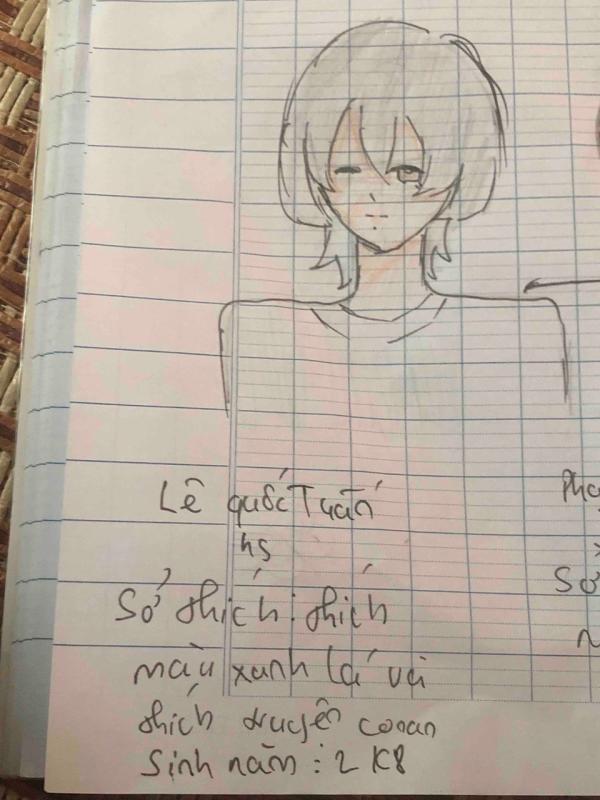 Lê quốc Tuấn
hs
Sở thích : thích
màu xanh lá và
thích truyện conan
Sinh năm : 2K8
Sở